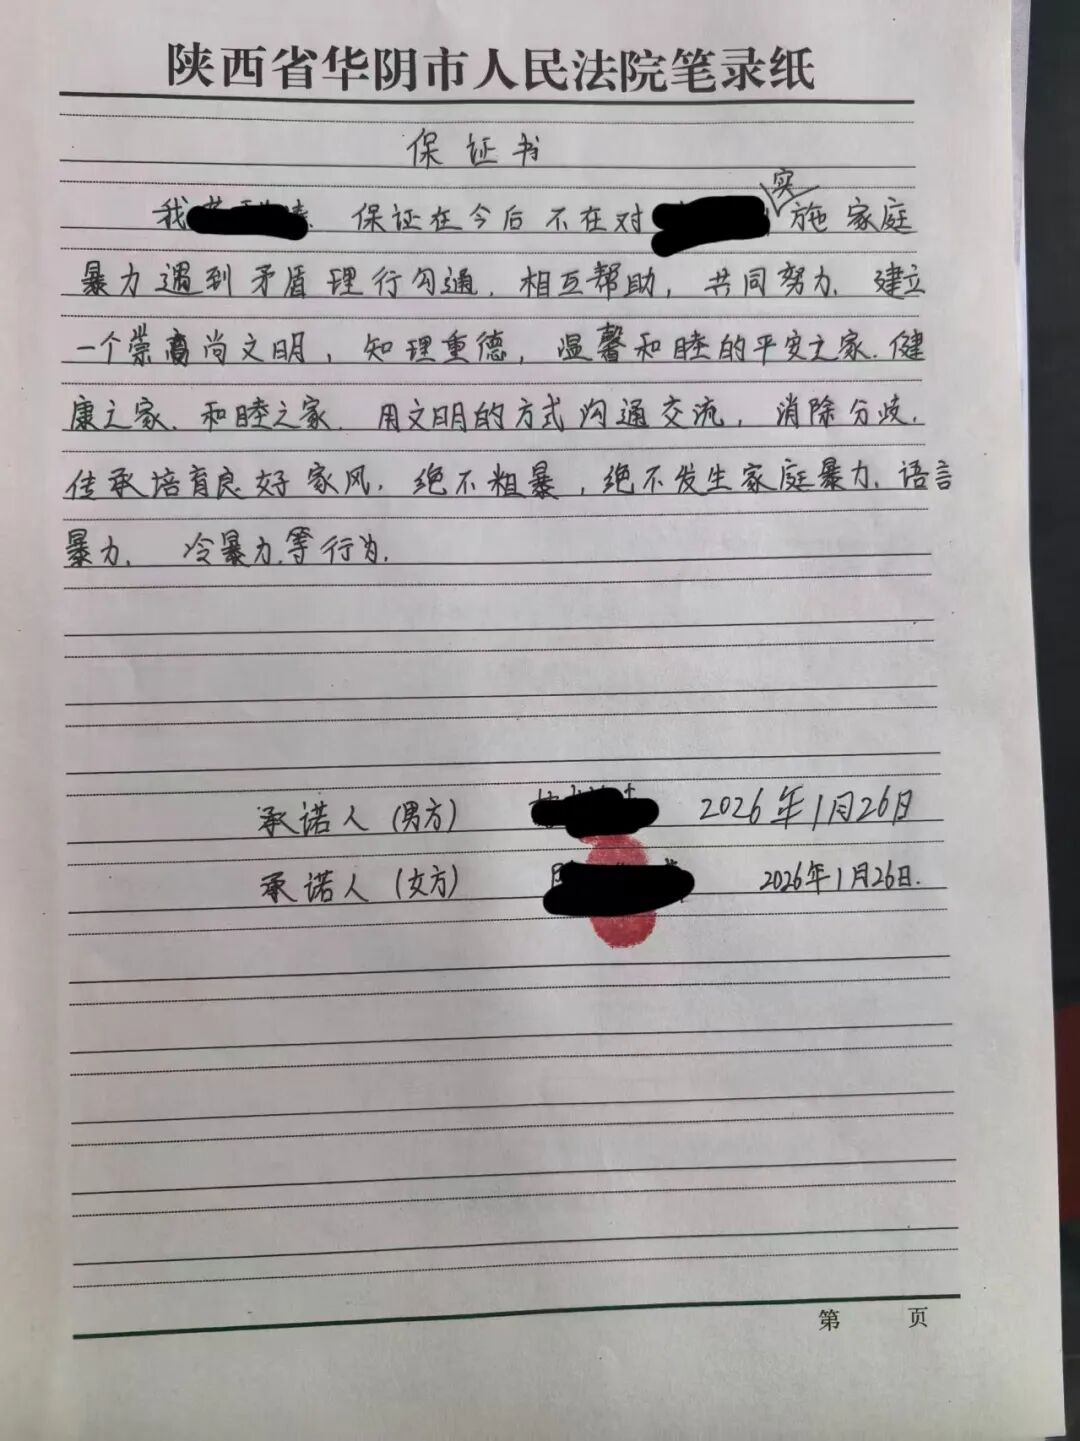 陕西省华阴市人民法院笔录纸
保证书
我 保证在今后不在对 实施家庭
暴力遇到矛盾理行勾通，相互帮助，共同努力、建立
一个崇尚文明，知理重德，温馨和睦的平安之家、健
康之家、和睦之家、用文明的方式沟通交流，消除分歧、
传承培育良好家风，绝不粗暴，绝不发生家庭暴力、语言
暴力、冷暴力、等行为、
承诺人（男方） 2026年1月26日
承诺人（女方） 2026年1月26日.
第 页